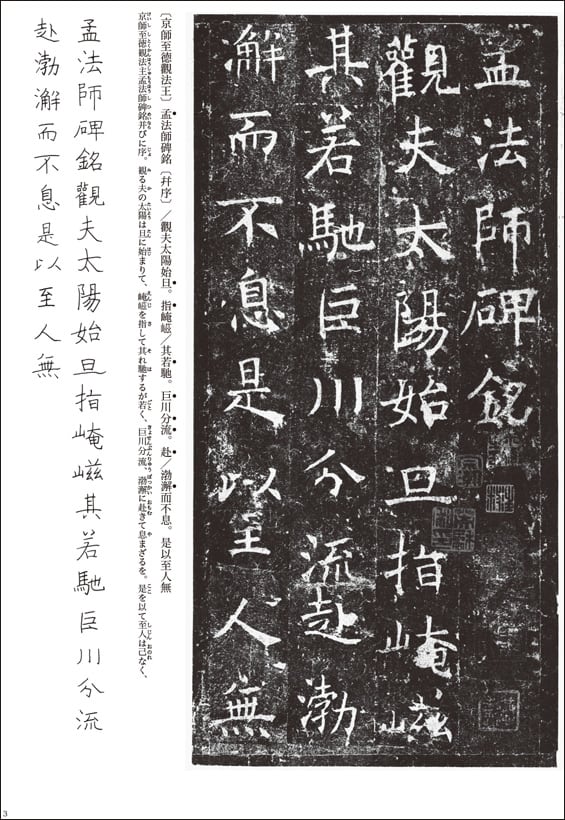 孟法師碑銘
觀夫太陽始旦指崦嵫
其若馳巨川分流赴渤
澥而不息是以至人無
〔京師至德觀法王〕孟法師碑銘〔幷序〕／觀夫太陽始旦。指崦嵫／其若馳。巨川分流。赴／渤澥而不息。是以至人無
京師至徳觀法主孟法師碑銘并びに序。觀る夫の太陽は旦に始まりて、崦嵫を指して其れ馳するが若く、巨川分流、渤澥に赴きて息まざるを。是を以て至人は己なく、
孟法師碑銘觀夫太陽始旦指崦嵫其若馳巨川分流
赴渤澥而不息是以至人無
3